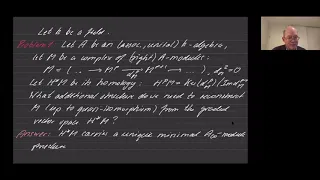 Let k be a field.
Problem 1: Let A be an (assoc., unital) k-algebra,
let M be a complex of (right) A-modules:
M = ( … → Mⁿ → Mⁿ⁺¹ → … ), d²ₘ = 0
Let H*M be its homology: HⁿM = Ker(dⁿₘ)/Im(dⁿ⁻¹ₘ)
What additional structure do we need to reconstruct
M (up to quasi-isomorphism) from the graded
vector space H*M?
Answer: H*M carries a unique minimal A∞-module
structure